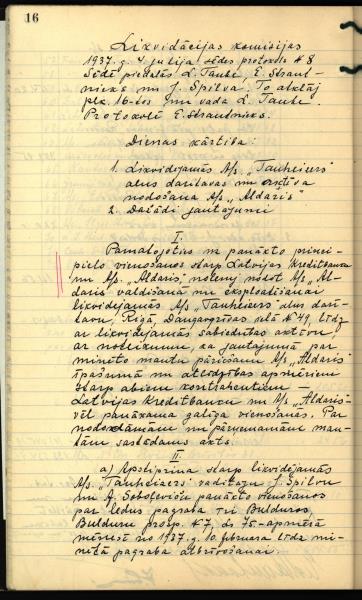 16
Likvidācijas komisijas
1937. g. 4. jūlija sēdes protokols № 8
Sēdē piedalās L. Taube, E. Straut-
nieks un J. Spilva. To atklāj
plk. 16-tos un vada L. Taube.
Protokolē E. Strautnieks.
Dienas kārtība:
1. Likvidējamās A/s. „Tanheizers"
alus darītavas un
nodošana A/s. „Aldaris"
2. Dažādi jautājumi
I.
Pamatojoties uz panākto princi-
pielo vienošanos starp Latvijas Kreditbanku
un A/s. „Aldaris", nolemj nodot A/s. „Al-
daris" valdīšanā un eksploatēšanai
likvidējamās A/s. „Tanheizers" alus darī-
tavu, Rīgā, Daugavgrīvas ielā № 49, līdz
ar likvidējamās sabiedrības aktīvu,
ar noteikumu, ka jautājumā par
minēto mantu pāriešanu A/s. „Aldaris"
īpašumā un atlīdzības apmēriem
starp abiem kontrahentiem –
Latvijas Kreditbanku un A/s. „Aldaris"
vēl panākama galīga vienošanās. Par
nododamām un pārņemamām man-
tām sastādams akts.
II.
a) Apstiprina starp likvidējamās
A/s. „Tanheizers" vadītāju J. Spilvu
un A. panākto vienošanos
par ledus pagraba īri Bulduros,
Bulduru prosp. № 7, Ls 75.- apmērā
mēnesī no 1937. g. 10. februara līdz mi-
nētā pagraba atbrīvošanai.